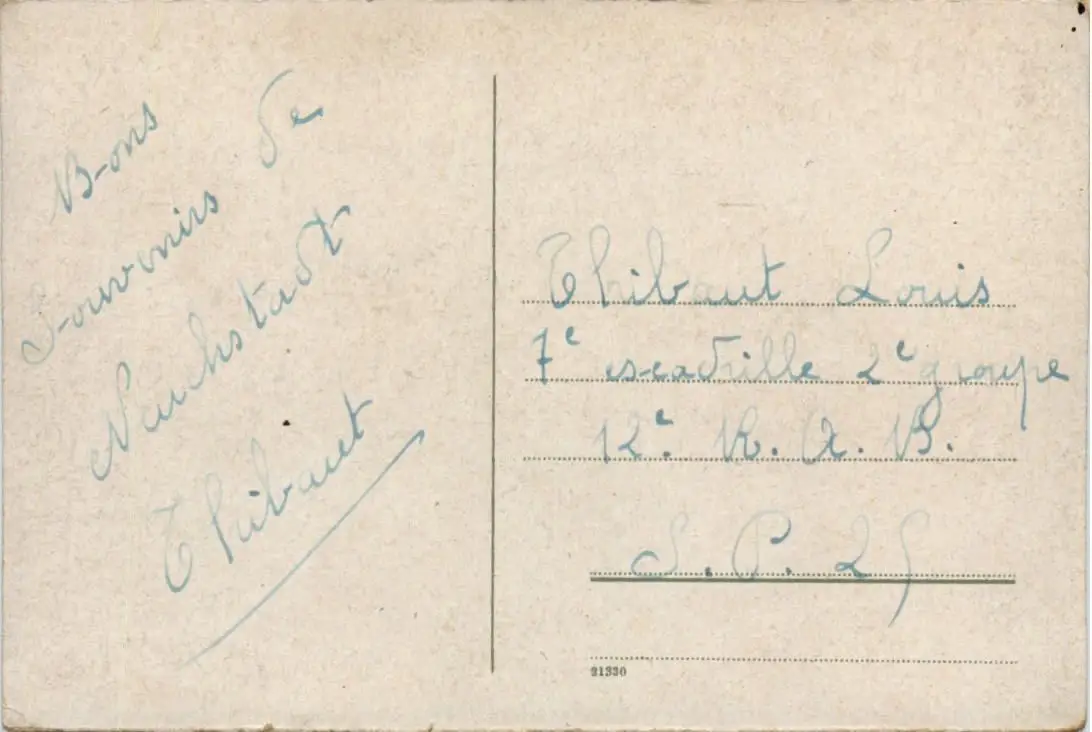 Bons
Souvenirs de
Thibaut
Thibaut Louis
7e escadrille 2e groupe
12e. R. A. B.
S. P. 25
21330